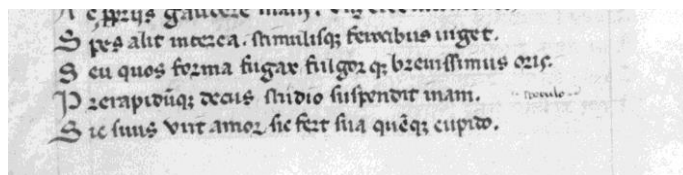 Spes alit interea. stimulisq; feracibus urget.
Seu quos forma fugax fulgorq; breuissimus oris.
Prerapidūq; decus studio suspendit inani.
Sic suus urit amor sic fert sua quēq; cupido.